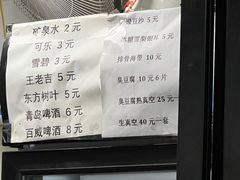 矿泉水 2 元
可乐 3 元
雪碧 3 元
王老吉 5 元
东方树叶 5 元
青岛啤酒 6 元
百威啤酒 8 元
豆沙 5 元
冰糖雪梨银耳 5 元
排骨海带 10 元
臭豆腐 10 元 6 片
臭豆腐熟真空 25 元
生真空 40 元一套